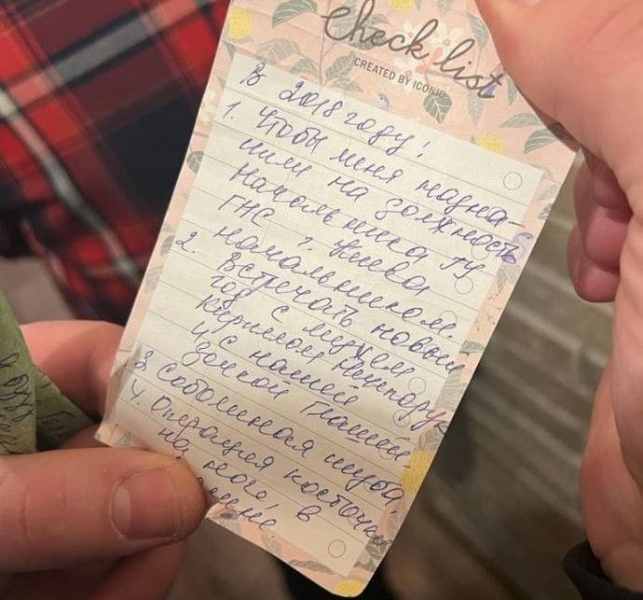 Check list
CREATED BY ICONIC
В 2018 году!
1. Чтобы меня назна-
чили на должность
Начальника ГУ
ГНС г. Киева
начальником.
2. Встречать новый
год с мужем
Кириллом
и с нашей
дочкой Глашей
3. Соболинная шуба
4. Операция косточка
на ноге в